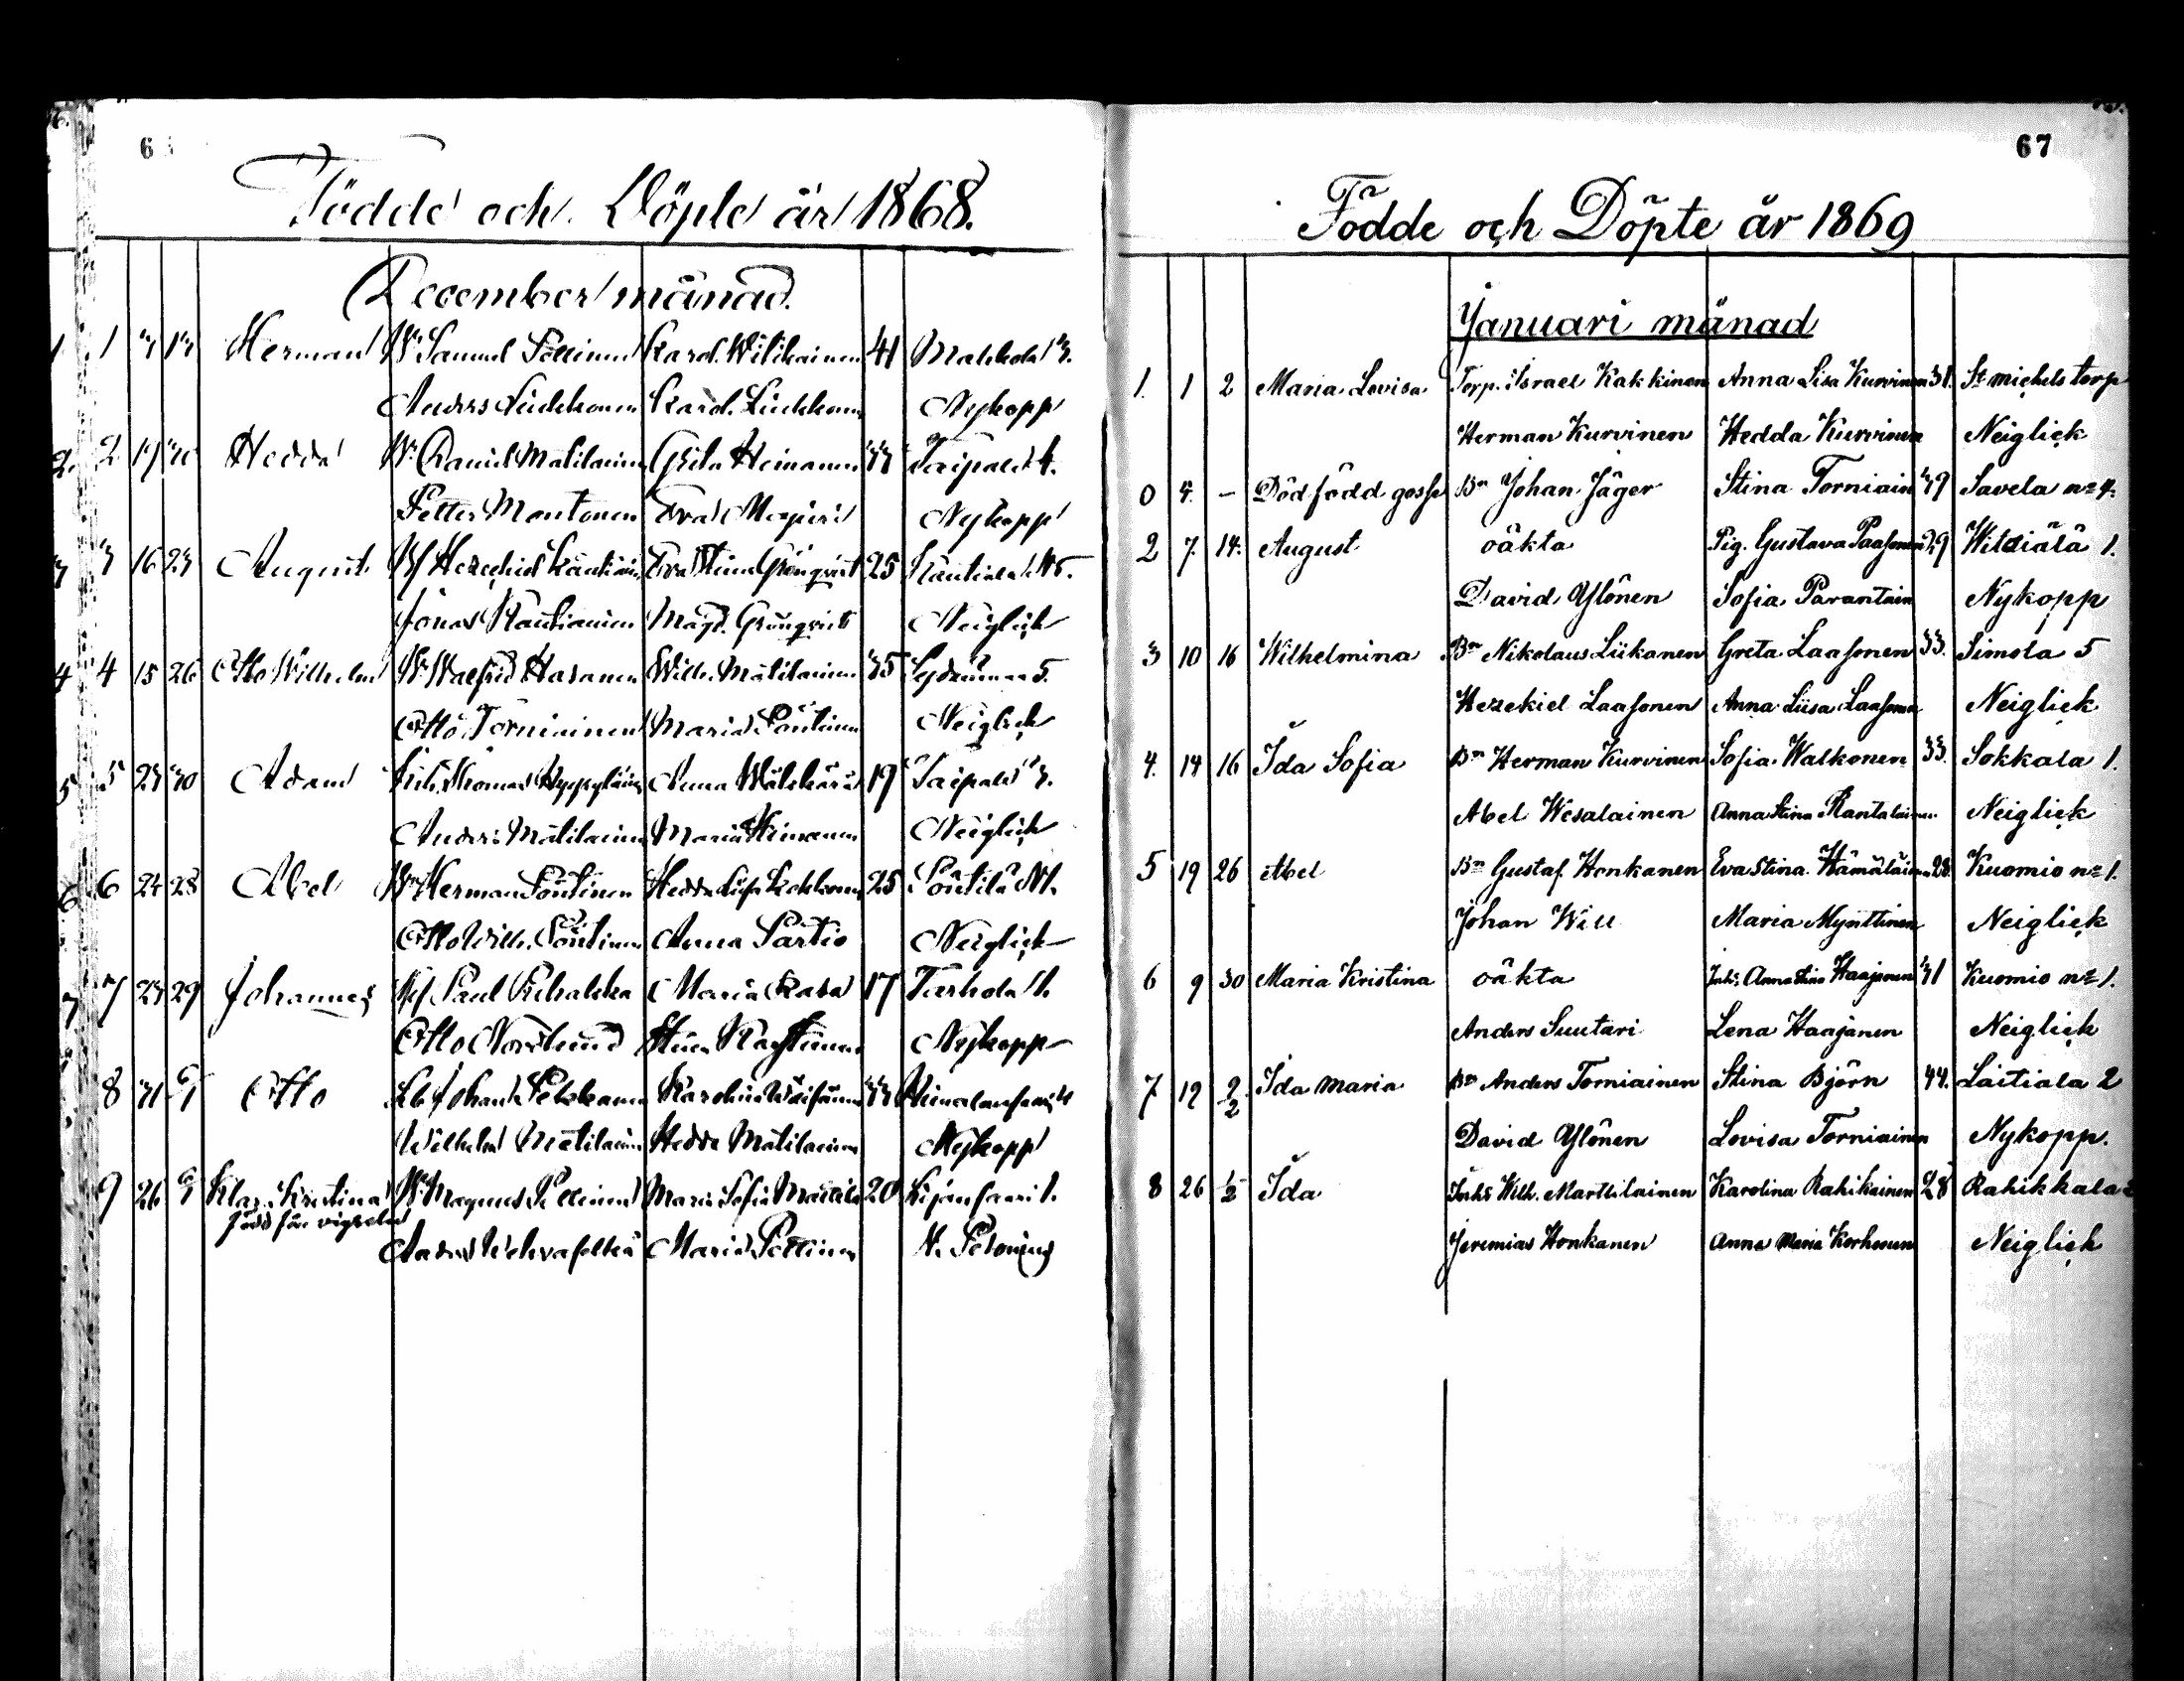 6
Födde och Döpte år 1868.
December månad.
1 1 3 13 Herman Bn Samuel Pellinen Karol. Wilikainen 41 Mahkola 3.
Anders Liukkonen Karol. Liukkonen Nykopp
2 2 19 20 Hedda Bn Daniel Matilainen Greta Heimanen 33 Taipale 4.
Petter Montonen Eva Nykopp
3 3 16 23 August Hezechiel Kautiain Eva Stina Grönqvist 25 Kautiala 5.
Jonas Kautiainen Magd. Grönqvist Neiglick
4 4 15 26 Otto Wilhelm Bn Walfrid Hasanen Wilh. Matilainen 35 5.
Otto Torniainen Maria Pöntinen Neiglick
5 5 23 30 Adam Thomas Anna 19 Taipale 3.
Anders Matilainen Maria Heimanen Neiglick
6 6 24 28 Abel Bn Herman Pöntinen Hedda Lisa 25 Pöntilä 1.
Otto Wilh. Pöntinen Anna Partio Neiglick
7 7 23 29 Johannes Paul Maria Kasa 17 1.
Otto Stina Nykopp
8 31 6/1 Otto Johan Karolina 33
Wilhelm Matilainen Hedda Matilainen Nykopp
9 26 6/1 Klar. Kristina Bn Magnus Pellinen Maria Sofia 20 1.
född före vigseln
Maria Pellinen
67
Födde och Döpte år 1869
Januari månad
1. 1 2 Maria Lovisa Torp. Israel Kakkinen Anna Lisa Kurvinen 31. St michels torp
Herman Kurvinen Hedda Kurvinen Neiglick
0 4. — Dödfödd gosse Bn Johan Jäger Stina Torniain 39 Savela no 4.
2 7. 14. August oäkta Pig. Gustava Paasonen 29 Wilaiälä 1.
David Ylönen Sofia Parantain Nykopp
3 10 16 Wilhelmina Bn Nikolaus Liikanen Greta Laasonen 33. Simola 5
Hezekiel Laasonen Anna Liisa Laasonen Neiglick
4. 14 16 Ida Sofia Bn Herman Kurvinen Sofia Walkonen 33. Sokkala 1.
Abel Wesalainen Anna Stina Rantalainen Neiglick
5 19 26 Abel Bn Gustaf Honkanen Eva Stina Hämäläinen 28. Kuomio no 1.
Johan Will Maria Mynttinen Neiglick
6 9 30 Maria Kristina oäkta Inhs Anna Stina Haajanen 31 Kuomio no 1.
Anders Suutari Lena Haajanen Neiglick
7 12 2/2 Ida Maria Bn Anders Torniainen Stina Björn 44. Laitiala 2
David Ylönen Lovisa Torniainen Nykopp.
8 26 1/2 Ida Inhs Wilh. Marttilainen Karolina Rahikainen 28 Rahikkala 2
Jeremias Honkanen Anna Maria Korhonen Neiglick